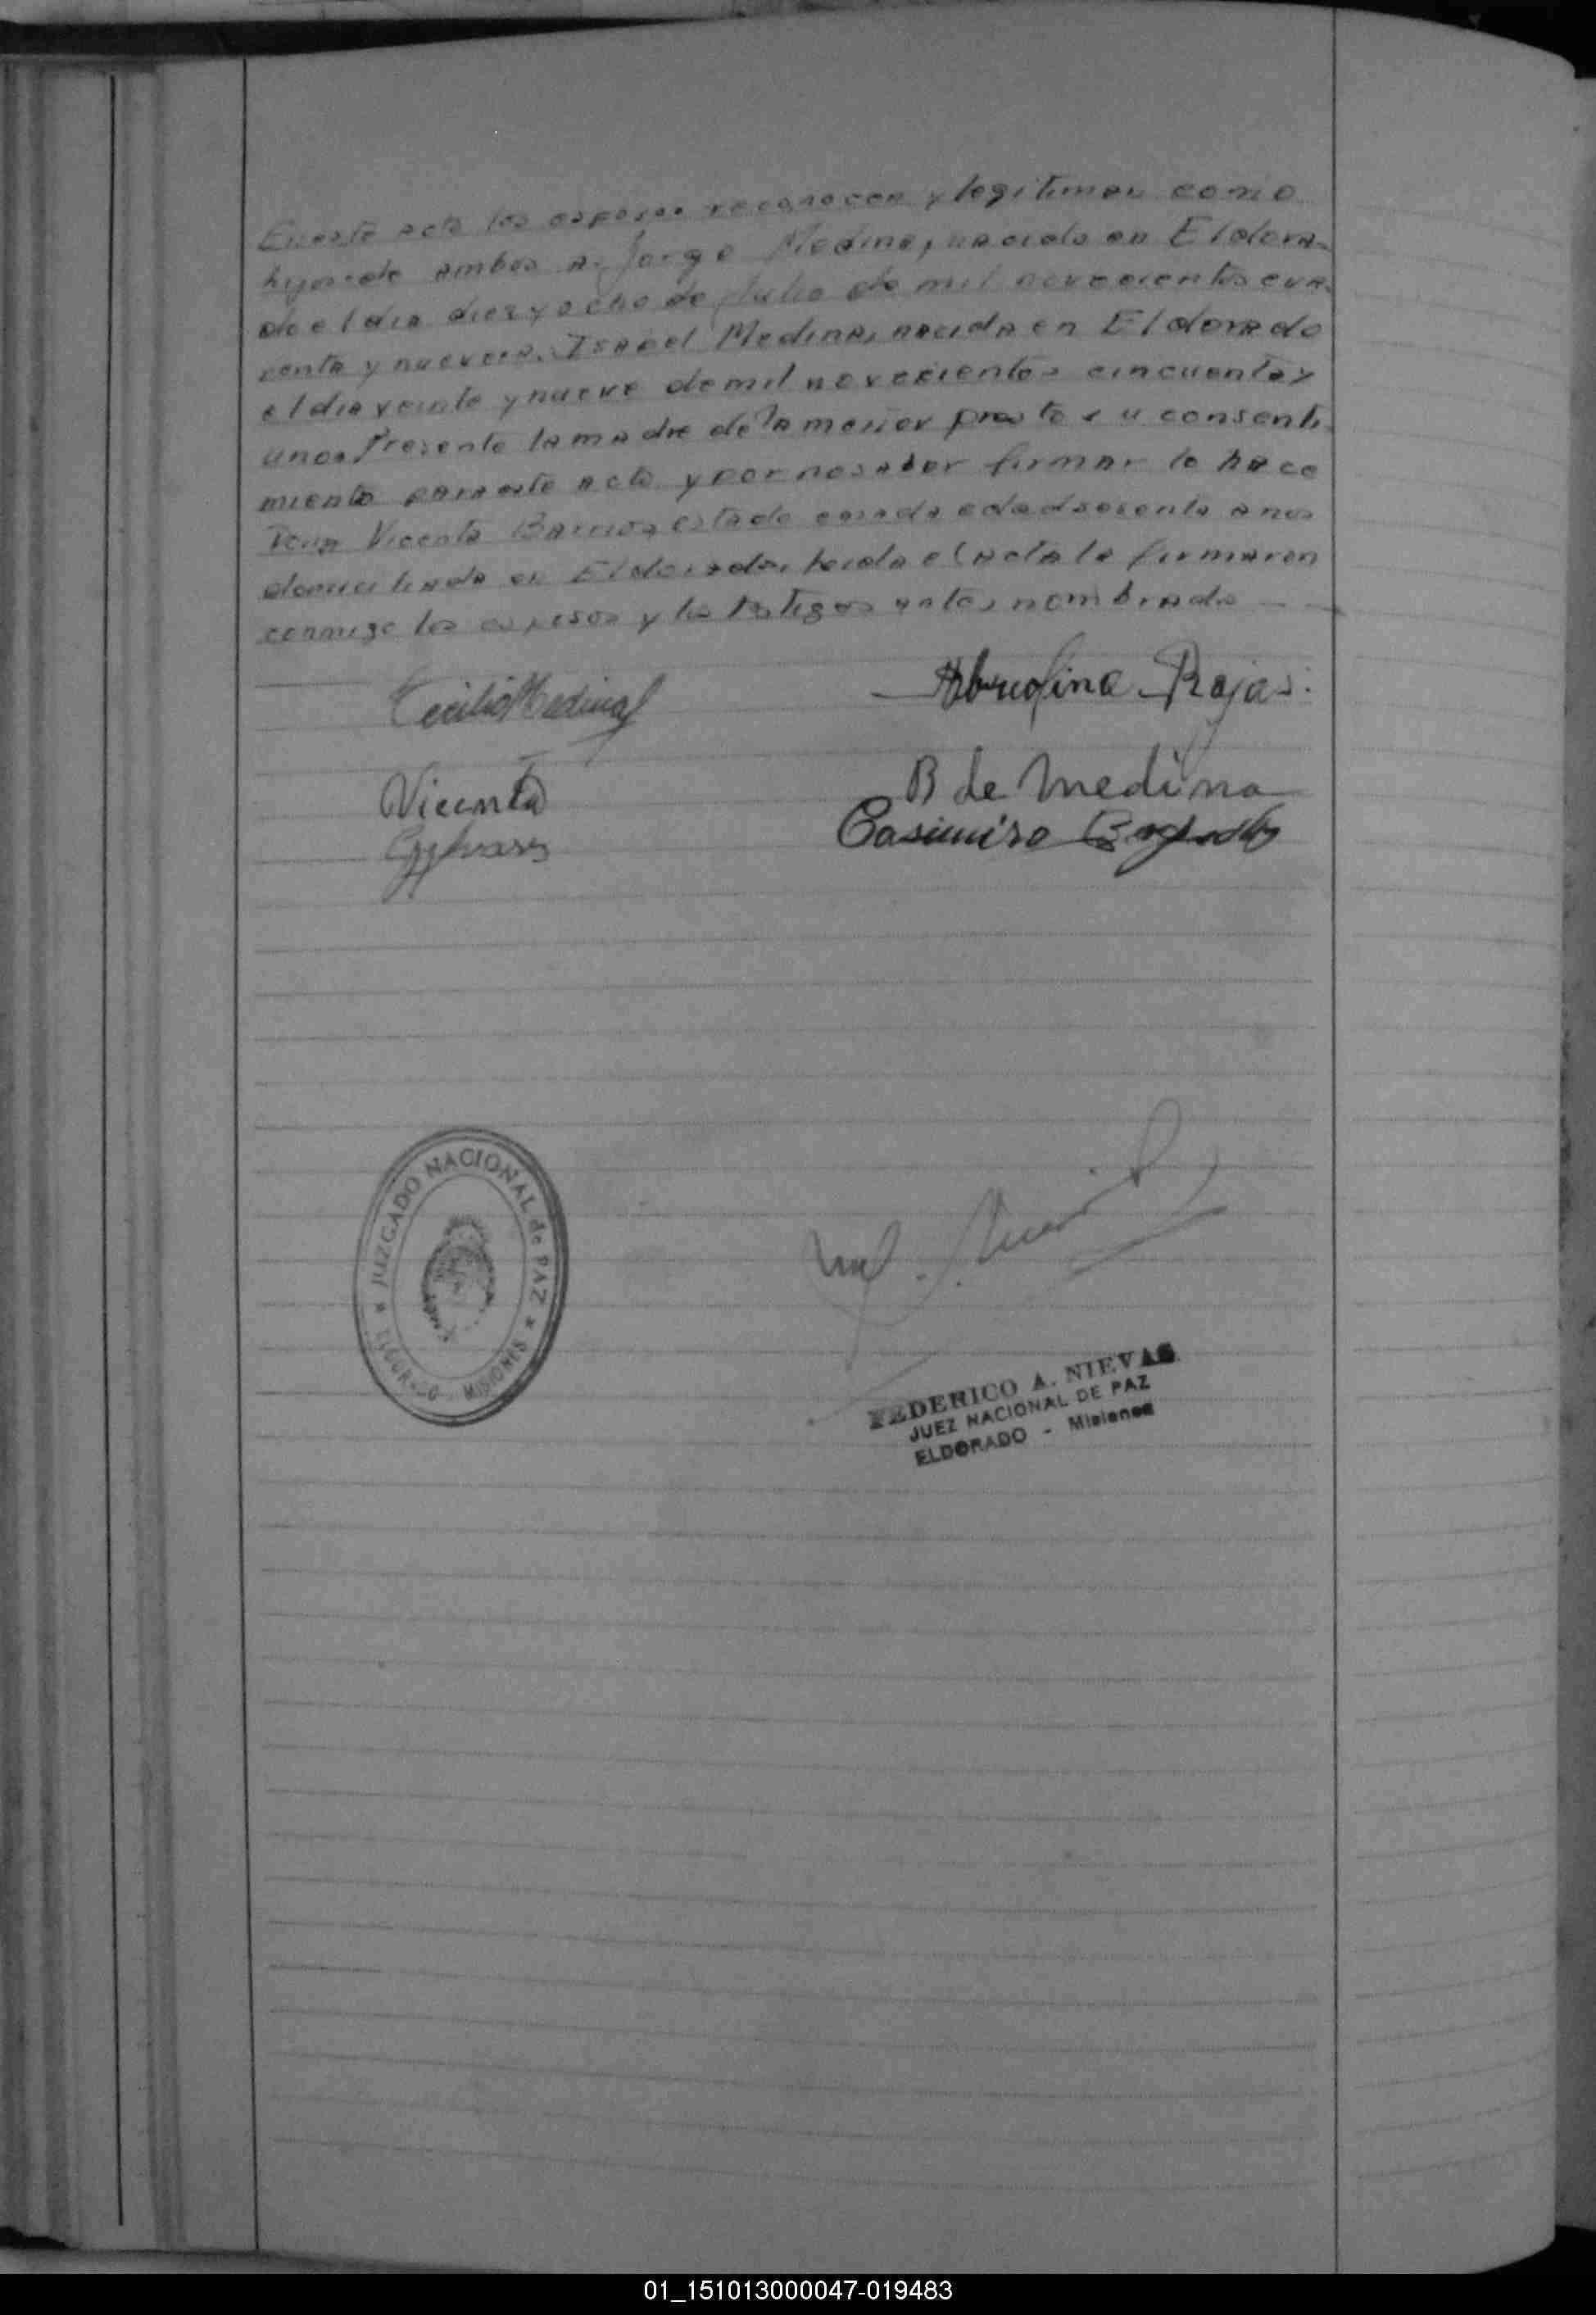 En este acto los esposos reconocen y legitiman como
hijos de ambos a: Jorge Medina, nacido en Eldora-
do el dia diez y ocho de Julio de mil novecientos cua-
renta y nueve. Isabel Medina, nacida en Eldorado
el dia veinte y nueve de mil novecientos cincuenta y
uno. Presente la madre de la menor presto su consenti-
miento para este acto y por no saber firmar lo hace
Vicenta Barrios estado casada edad sesenta anos
domiciliada en Eldorado, leida el acta la firmaron
conmigo los esposos y los testigos antes nombrado
Cecilio Medina Rojas
Vicenta B de Medina
Casimiro
JUZGADO NACIONAL de PAZ
ELDORADO - MISIONES
FEDERICO A. NIEVAS
JUEZ NACIONAL DE PAZ
ELDORADO - Misiones
01_151013000047-019483